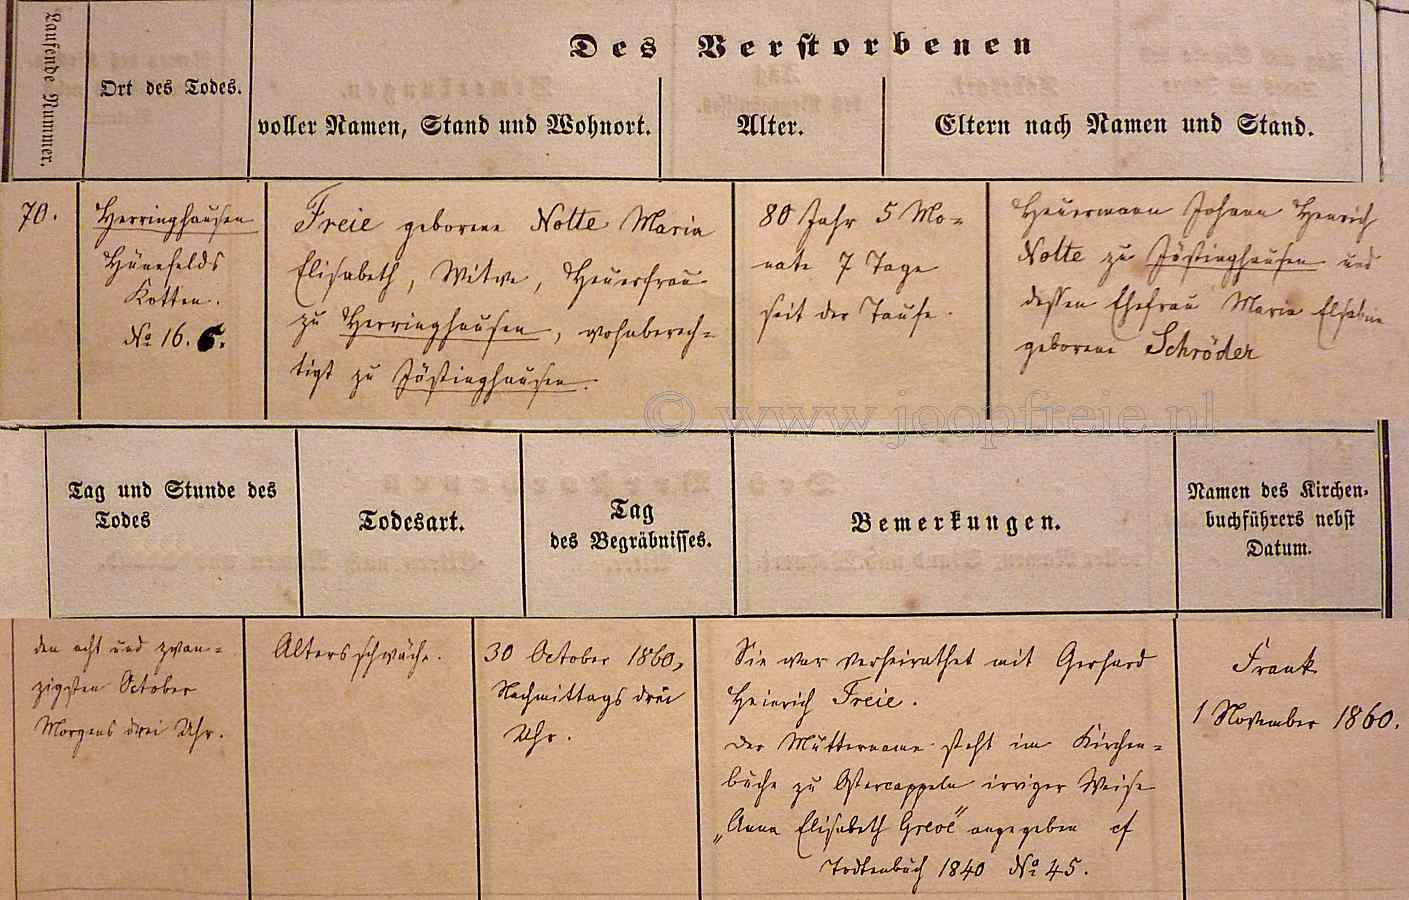 Des Verstorbenen
Laufende Nummer.
Ort des Todes.
voller Namen, Stand und Wohnort.
Alter.
Eltern nach Namen und Stand.
70.
Herringhausen
Hünefelds
Kotten.
No 16. 6.
Freie geborene Nolte Maria
Elisabeth, Witwe, Heuerfrau
zu Herringhausen, wohnberech-
tigt zu Jöstinghausen.
80 Jahr 5 Mo-
nate 7 Tage
seit der Taufe.
Heuermann Johann Henrich
Nolte zu Jöstinghausen und
dessen Ehefrau Maria Elsabein
geborene Schröder
© www.joopfreie.nl
Tag und Stunde des
Todes
Todesart.
Tag
des Begräbnisses.
Bemerkungen.
Namen des Kirchen-
buchführers nebst
Datum.
den acht und zwan-
zigsten October
Morgens drei Uhr.
Altersschwäche.
30 October 1860,
Nachmittags drei
Uhr.
Sie war verheirathet mit Gerhard
Heinrich Freie.
Der Muttername steht im Kirchen-
buche zu Ostercappeln irriger Weise
„Anna Elisabeth Greve" angegeben cf
Todtenbuch 1840 No 45.
Frank
1 November 1860.